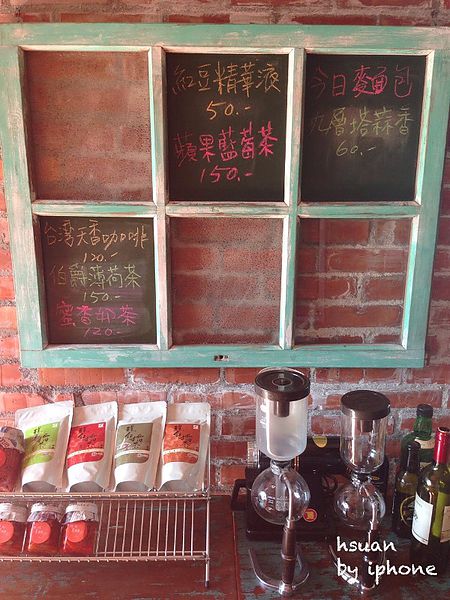 紅豆精華液
50.-
蘋果藍莓茶
150.-
今日麵包
九層塔蒜香
60.-
台灣天香咖啡
120.-
伯爵薄荷茶
150.-
蜜香奶茶
120.-
hsuan
by iphone